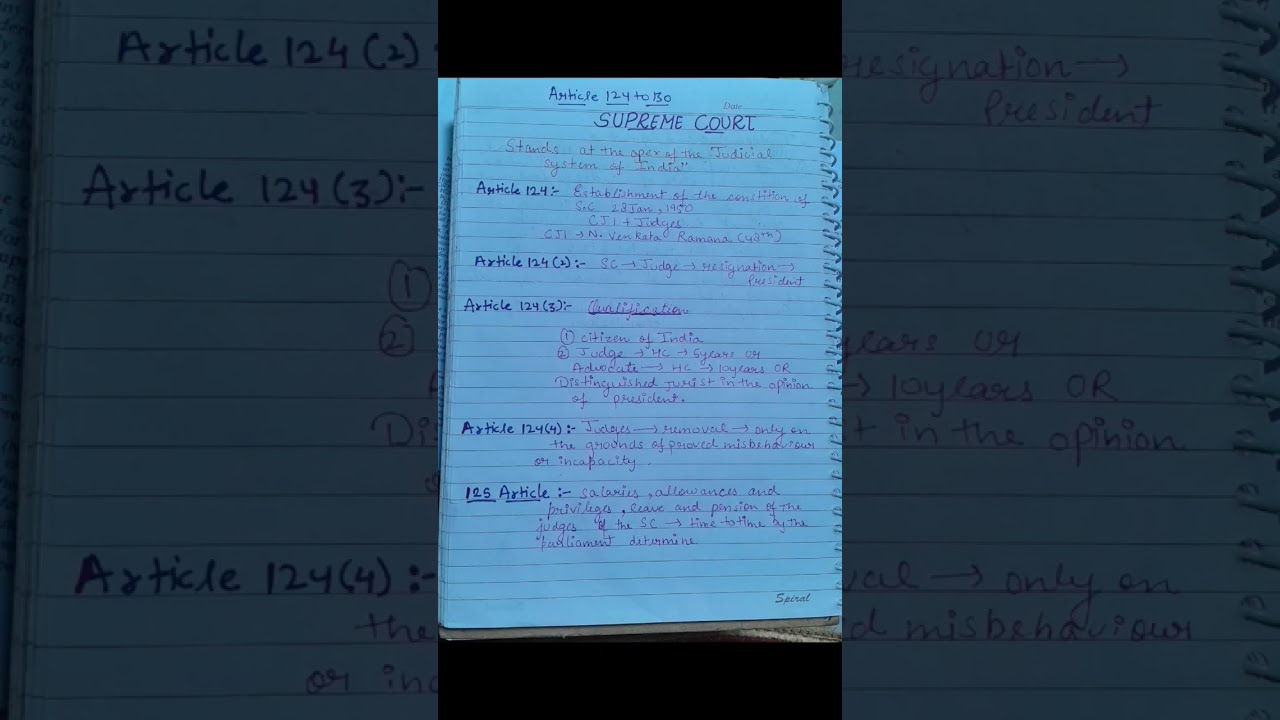 Article 124 to 130
Date
SUPREME COURT
Stands at the apex of the Judicial
system of India"
Article 124:- Establishment of the constition of
S.C 28 Jan, 1950
CJI + Judges
CJI → N. Venkata Ramana (48th)
Article 124(2):- SC → Judge → resignation →
President
Article 124(3):- Qualification
① citizen of India
② Judge → HC → 5years or
Advocate → HC → 10years OR
Distinguished jurist in the opinion
of president.
Article 124(4):- Judges → removal → only on
the grounds of proved misbehaviour
or incapacity.
125 Article :- salaries, allowances and
privileges, leave and pension of the
judges of the SC → time to time by the
parliament determine.
Spiral